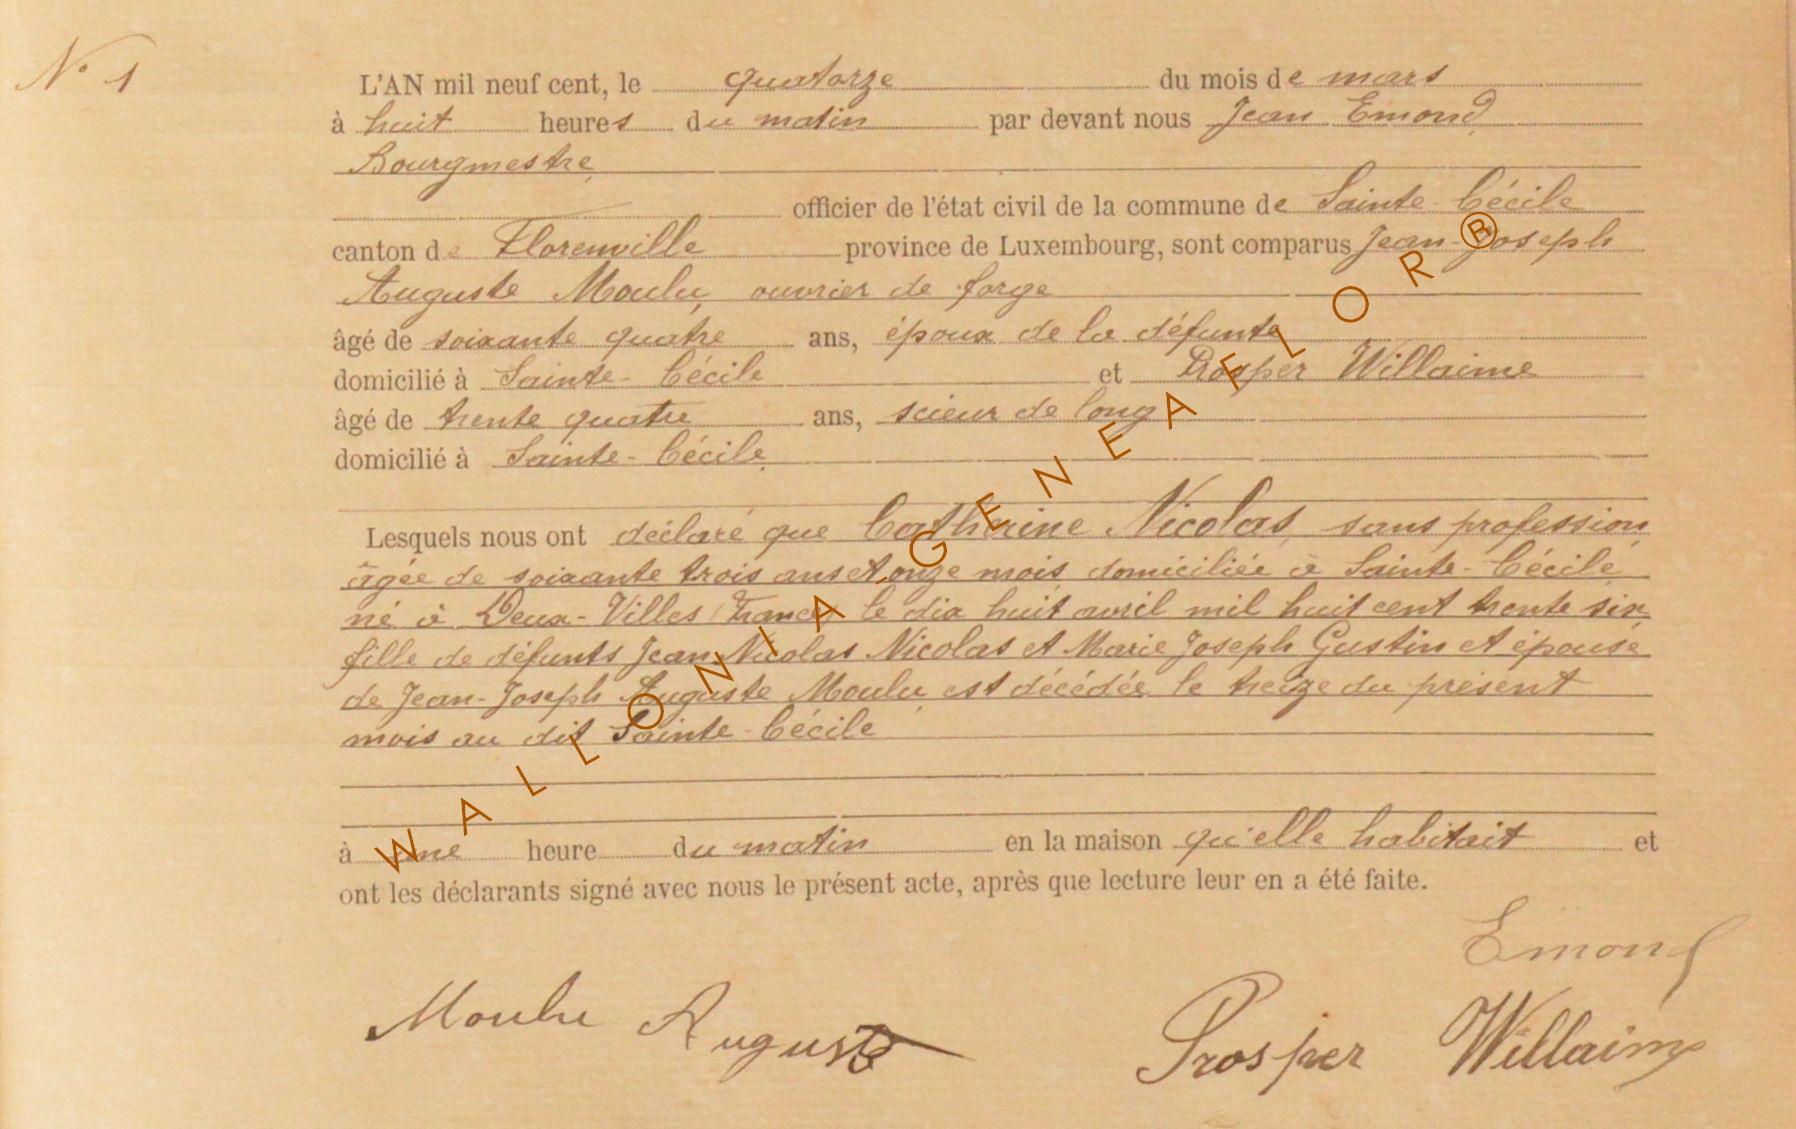 N° 1
L'AN mil neuf cent, le quatorze du mois de mars
à huit heures du matin par devant nous Jean Emond
Bourgmestre
officier de l'état civil de la commune de Sainte-Cécile
canton de Florenville province de Luxembourg, sont comparus Jean-Joseph
Auguste Moulu, ouvrier de forge
âgé de soixante quatre ans, époux de la défunte
domicilié à Sainte-Cécile et Prosper Willaime
âgé de trente quatre ans, scieur de long
domicilié à Sainte-Cécile
Lesquels nous ont déclaré que Catherine Nicolas, sans profession
âgée de soixante trois ans et onze mois domiciliée à Sainte-Cécile
né à Deux-Villes (France) le dix huit avril mil huit cent trente six
fille de défunts Jean Nicolas Nicolas et Marie Joseph Gustin et épouse
de Jean-Joseph Auguste Moulu est décédée le treize du présent
mois au dit Sainte-Cécile
à une heure du matin en la maison qu'elle habitait et
ont les déclarants signé avec nous le présent acte, après que lecture leur en a été faite.
Emond
Moulu Auguste Prosper Willaime
WALLONIA.GENEAFLOR®